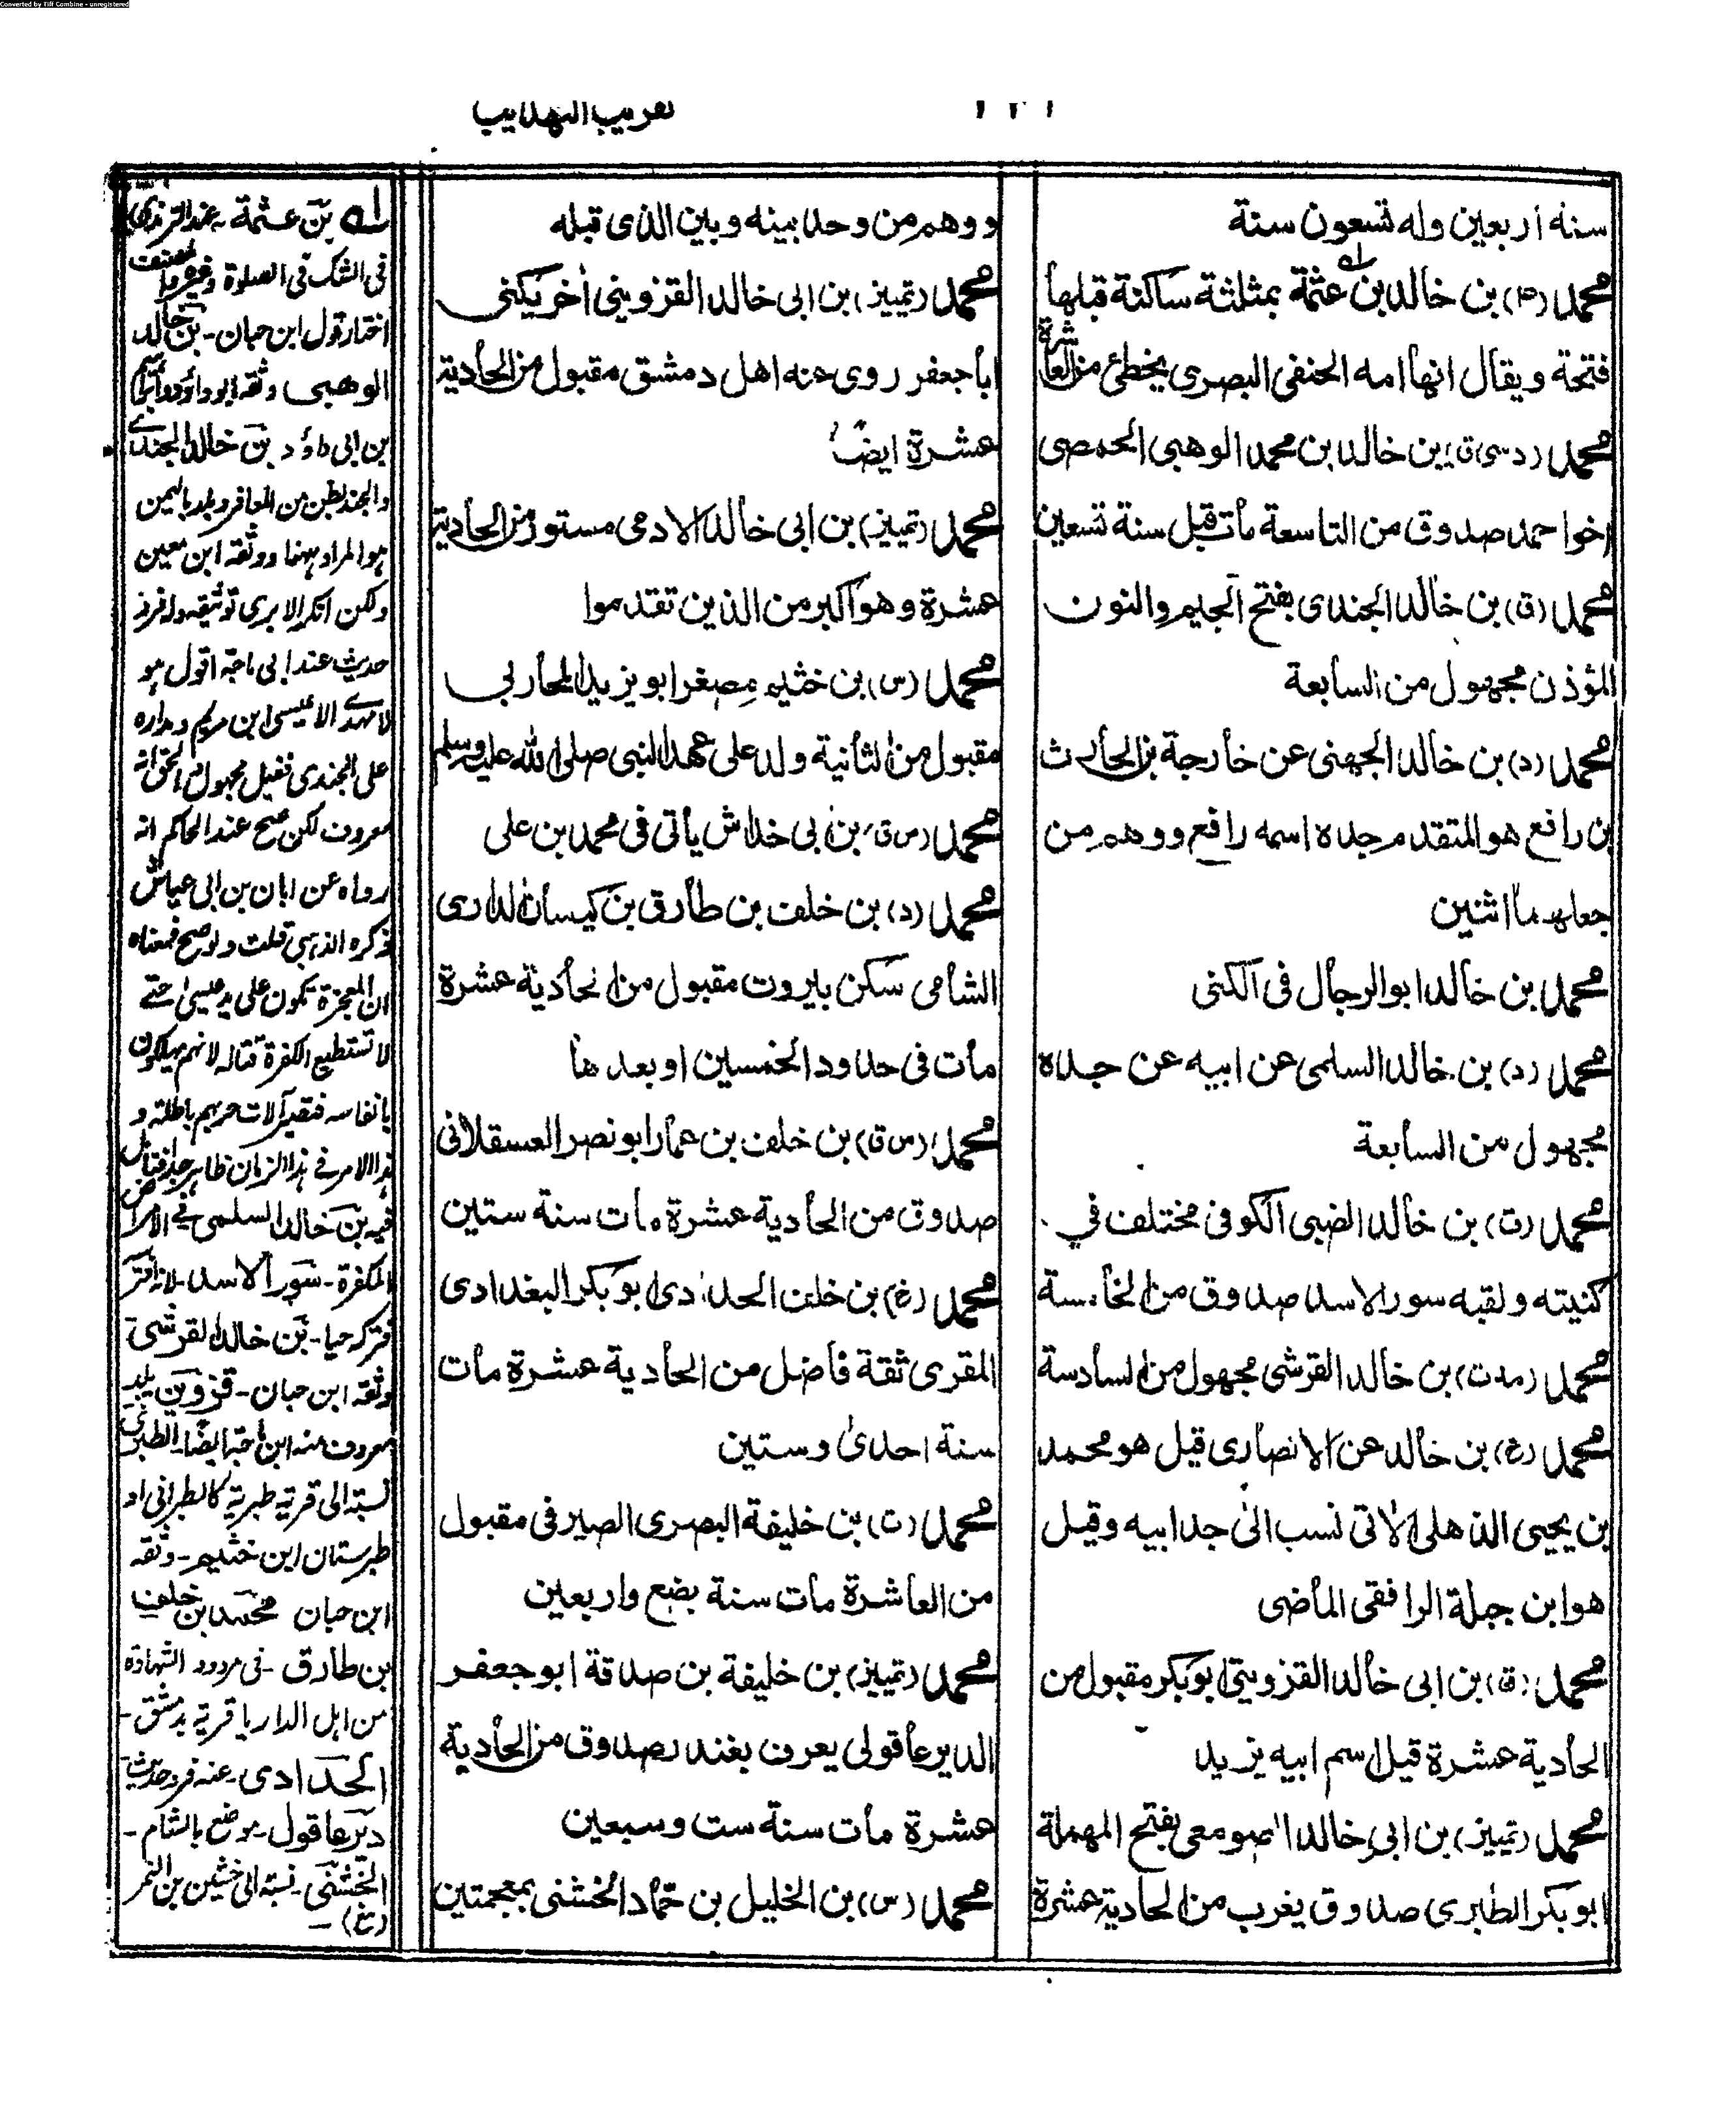 Converted by Tiff Combine - unregistered
تقريب التهذيب
سنة اربعين وله تسعون سنة
محمد (٤) بن خالد بن عثمة بمثلثة ساكنة قبلها
فتحة ويقال انها امه الحنفى البصرى يخطئ من العاشرة
محمد (د سى ق) بن خالد بن محمد الوهبى الحمصى
اخو احمد صدوق من التاسعة مات قبل سنة تسعين
محمد (ق) بن خالد الجندى بفتح الجيم والنون
المؤذن مجهول من السابعة
محمد (د) بن خالد الجهنى عن خارجة بن الحارث
بن رافع هو المتقدم جده اسمه رافع ووهم من
جعلهما اثنين
محمد بن خالد ابو الرجال فى الكنى
محمد (د) بن خالد السلمى عن ابيه عن جده
مجهول من السابعة
محمد (ت) بن خالد الضبى الكوفى مختلف في
كنيته ولقبه سور الاسد صدوق من الخامسة
محمد (مد ت) بن خالد القرشى مجهول من السادسة
محمد (خ) بن خالد عن الانصارى قيل هو محمد
بن يحيى الذهلى الاتى نسب الى جد ابيه وقيل
هو ابن جبلة الرافقى الماضى
محمد (ق) بن ابى خالد القزوينى ابو بكر مقبول من
الحادية عشرة قيل اسم ابيه يزيد
محمد (تمييز) بن ابى خالد الصومعى بفتح المهملة
ابو بكر الطبرى صدوق يغرب من الحادية عشرة
ووهم من وحد بينه وبين الذى قبله
محمد (تمييز) بن ابى خالد القزوينى اخر يكنى
ابا جعفر روى عنه اهل دمشق مقبول من الحادية
عشرة ايضًا
محمد (تمييز) بن ابى خالد الادمى مستور من الحادية
عشرة وهو اكبر من الذين تقدموا
محمد (س) بن خثيم مصغر ابو يزيد المحاربى
مقبول من الثانية ولد على عهد النبى صلى الله عليه وسلم
محمد (س ق) بن ابى خداش يأتى فى محمد بن على
محمد (د) بن خلف بن طارق بن كيسان الدارى
الشامى سكن بيروت مقبول من الحادية عشرة
مات فى حدود الخمسين او بعدها
محمد (س ق) بن خلف بن عمار ابو نصر العسقلانى
صدوق من الحادية عشرة مات سنة ستين
محمد (خ) بن خلف الحدادى ابو بكر البغدادى
المقرى ثقة فاضل من الحادية عشرة مات
سنة احدى وستين
محمد (ت) بن خليفة البصرى الصيرفى مقبول
من العاشرة مات سنة بضع واربعين
محمد (تمييز) بن خليفة بن صدقة ابو جعفر
الديرعاقولى يعرف بغندر صدوق من الحادية
عشرة مات سنة ست وسبعين
محمد (س) بن الخليل بن حماد الخشنى بمعجمتين
له بن عثمة - عند الترمذى
فى الشك فى الصلوة وغيره والمصنف
اختار قول ابن حبان - بن خالد
الوهبى وثقه ابو داؤد
بن ابى داؤد بن خالد الجندى
والجند بطن من المعافر وبلد باليمن
هو المراد ههنا ووثقه ابن معين
ولكن انكر الابرى توثيقه وله فرد
حديث عند ابى ماجة اقول هو
لا مهدى الا عيسى ابن مريم ومداره
على الجندى فقيل مجهول والحق انه
معروف لكن صح عند الحاكم انه
رواه عن ابان بن ابى عياش
ذكره الذهبى قلت ولو صح فمعناه
ان المعجزة يكون على يد عيسى حتى
لا تستطيع الكفرة قتاله لانهم يهلكون
بانفاسه فتصير آلات حربهم باطلة و
هذا الامر فى هذا الزمان ظاهر جدا فتأمل
فيه بن خالد السلمى فى الامراض
المكفرة - سور الاسد - لانه افترسه
فتركه حيا - بن خالد القرشى
وثقه ابن حبان - قزوين بلد
معروف منه ابن ماجة ايضا - الطبرى
نسبة الى قرية طبرية كالطبرانى او
طبرستان ابن خثيم - وثقه
ابن حبان محمد بن خلف
بن طارق - فى مردود الشهادة
من اهل الداريا قرية بدمشق -
الحدادى - عنه فرد حديث
ديرعاقول - موضع بالشام -
الخشنى - نسبة الى خشين بن النمر
(مغ) -